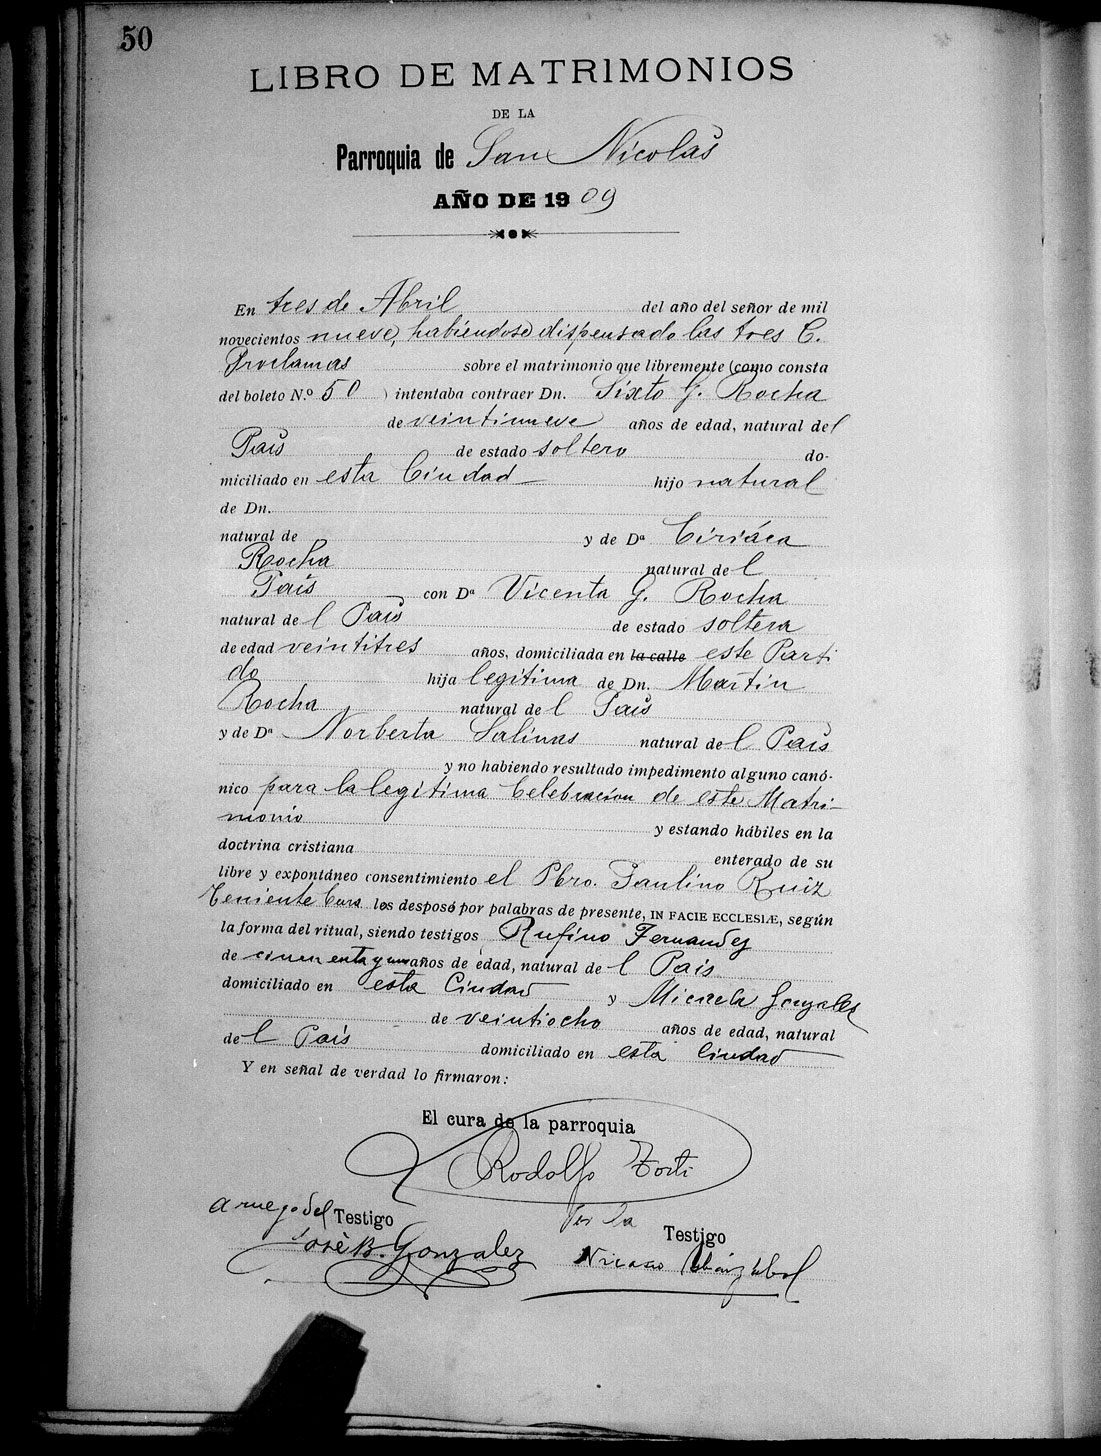 50
LIBRO DE MATRIMONIOS
DE LA
Parroquia de San Nicolas
AÑO DE 1909
En tres de Abril del año del señor de mil
novecientos nueve, habiendose dispensado las tres C.
Proclamas sobre el matrimonio que libremente (como consta
del boleto N.º 50 ) intentaba contraer Dn. Sixto G. Rocha
de veintinueve años de edad, natural del
Pais de estado soltero do-
miciliado en esta Ciudad hijo natural
de Dn.
natural de y de Dª Ciriáca
Rocha natural del
Pais con Dª Vicenta G. Rocha
natural del Pais de estado soltera
de edad veintitres años, domiciliada en la calle este Parti
do hija legitima de Dn. Martin
Rocha natural del Pais
y de Dª Norberta Salinas natural del Pais
y no habiendo resultado impedimento alguno canó-
nico para la legitima Celebracion de este Matri-
monio y estando hábiles en la
doctrina cristiana enterado de su
libre y expontáneo consentimiento el Pbro. Paulino Ruiz
Teniente Cura los desposó por palabras de presente, IN FACIE ECCLESIÆ, según
la forma del ritual, siendo testigos Rufino Fernandez
de cincuenta y un años de edad, natural del Pais
domiciliado en esta Ciudad y Micaela Gonzalez
de veintiocho años de edad, natural
del País domiciliado en esta Ciudad
Y en señal de verdad lo firmaron:
El cura de la parroquia
Rodolfo Torti
a ruego del Testigo Por la Testigo
José B. Gonzalez Nicasio